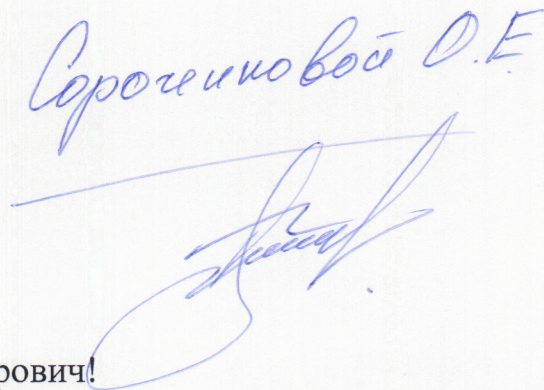 Сороченковой О.Е
рович!